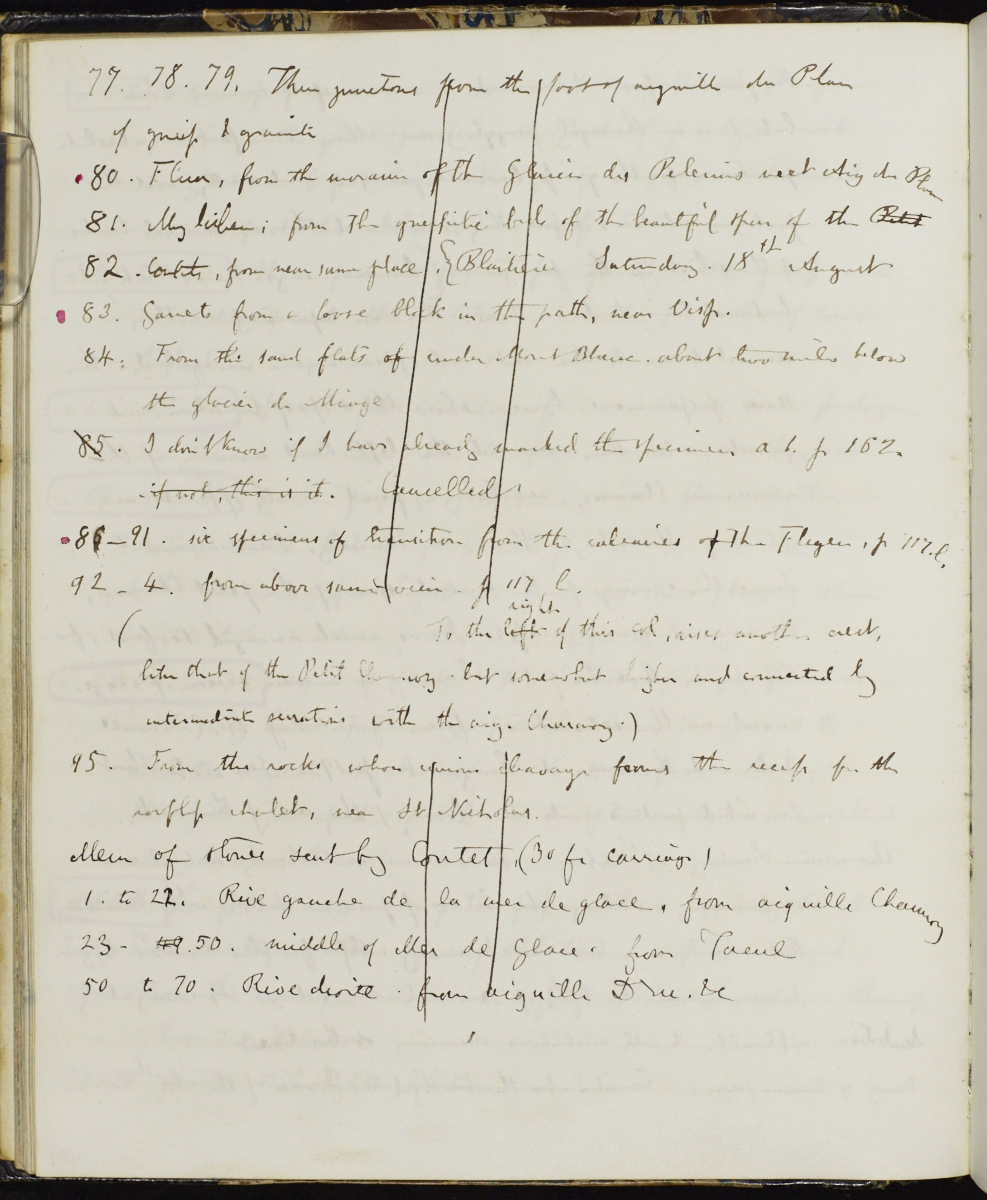 77. 78. 79. Three junctions from the foot of aiguille du Plan
of gneiss & granite
80. Fluor, from the moraine of the Glacier des Pelerins next Aig du Plan
81. My lichen; from the gneissitic beds of the beautiful spur of the Petit
82. Coutets, from near same place. Blaitiere Saturday. 18th August
83. Garnets from a loose block in the path, near Visp.
84. From the sand flats of under Mont Blanc. about two miles below
the glacier de Miage
85. I don't know if I have already marked the specimen a b. p 162.
if not, this is it. Cancelled
86-91. six specimens of transition from the calcaires of the Flegere, p 117.l.
92-4. from above same vein. p 117 l.
( To the left right of this col, rises another crest,
like that of the Petit Charmoz. but somewhat higher and connected by
intermediate serrations with the aig. Charmoz.)
95. From the rocks whose curious cleavage forms the recess for the
roofless chalet, near St Nicholas.
Mem of stones sent by Coutet, (30 fr carriage)
1. to 22. Rive gauche de la mer de glace, from aiguille Charmoz
23 - 49.50. middle of Mer de Glace. from Tacul
50 to 70. Rive droite. from aiguille Dru. &c